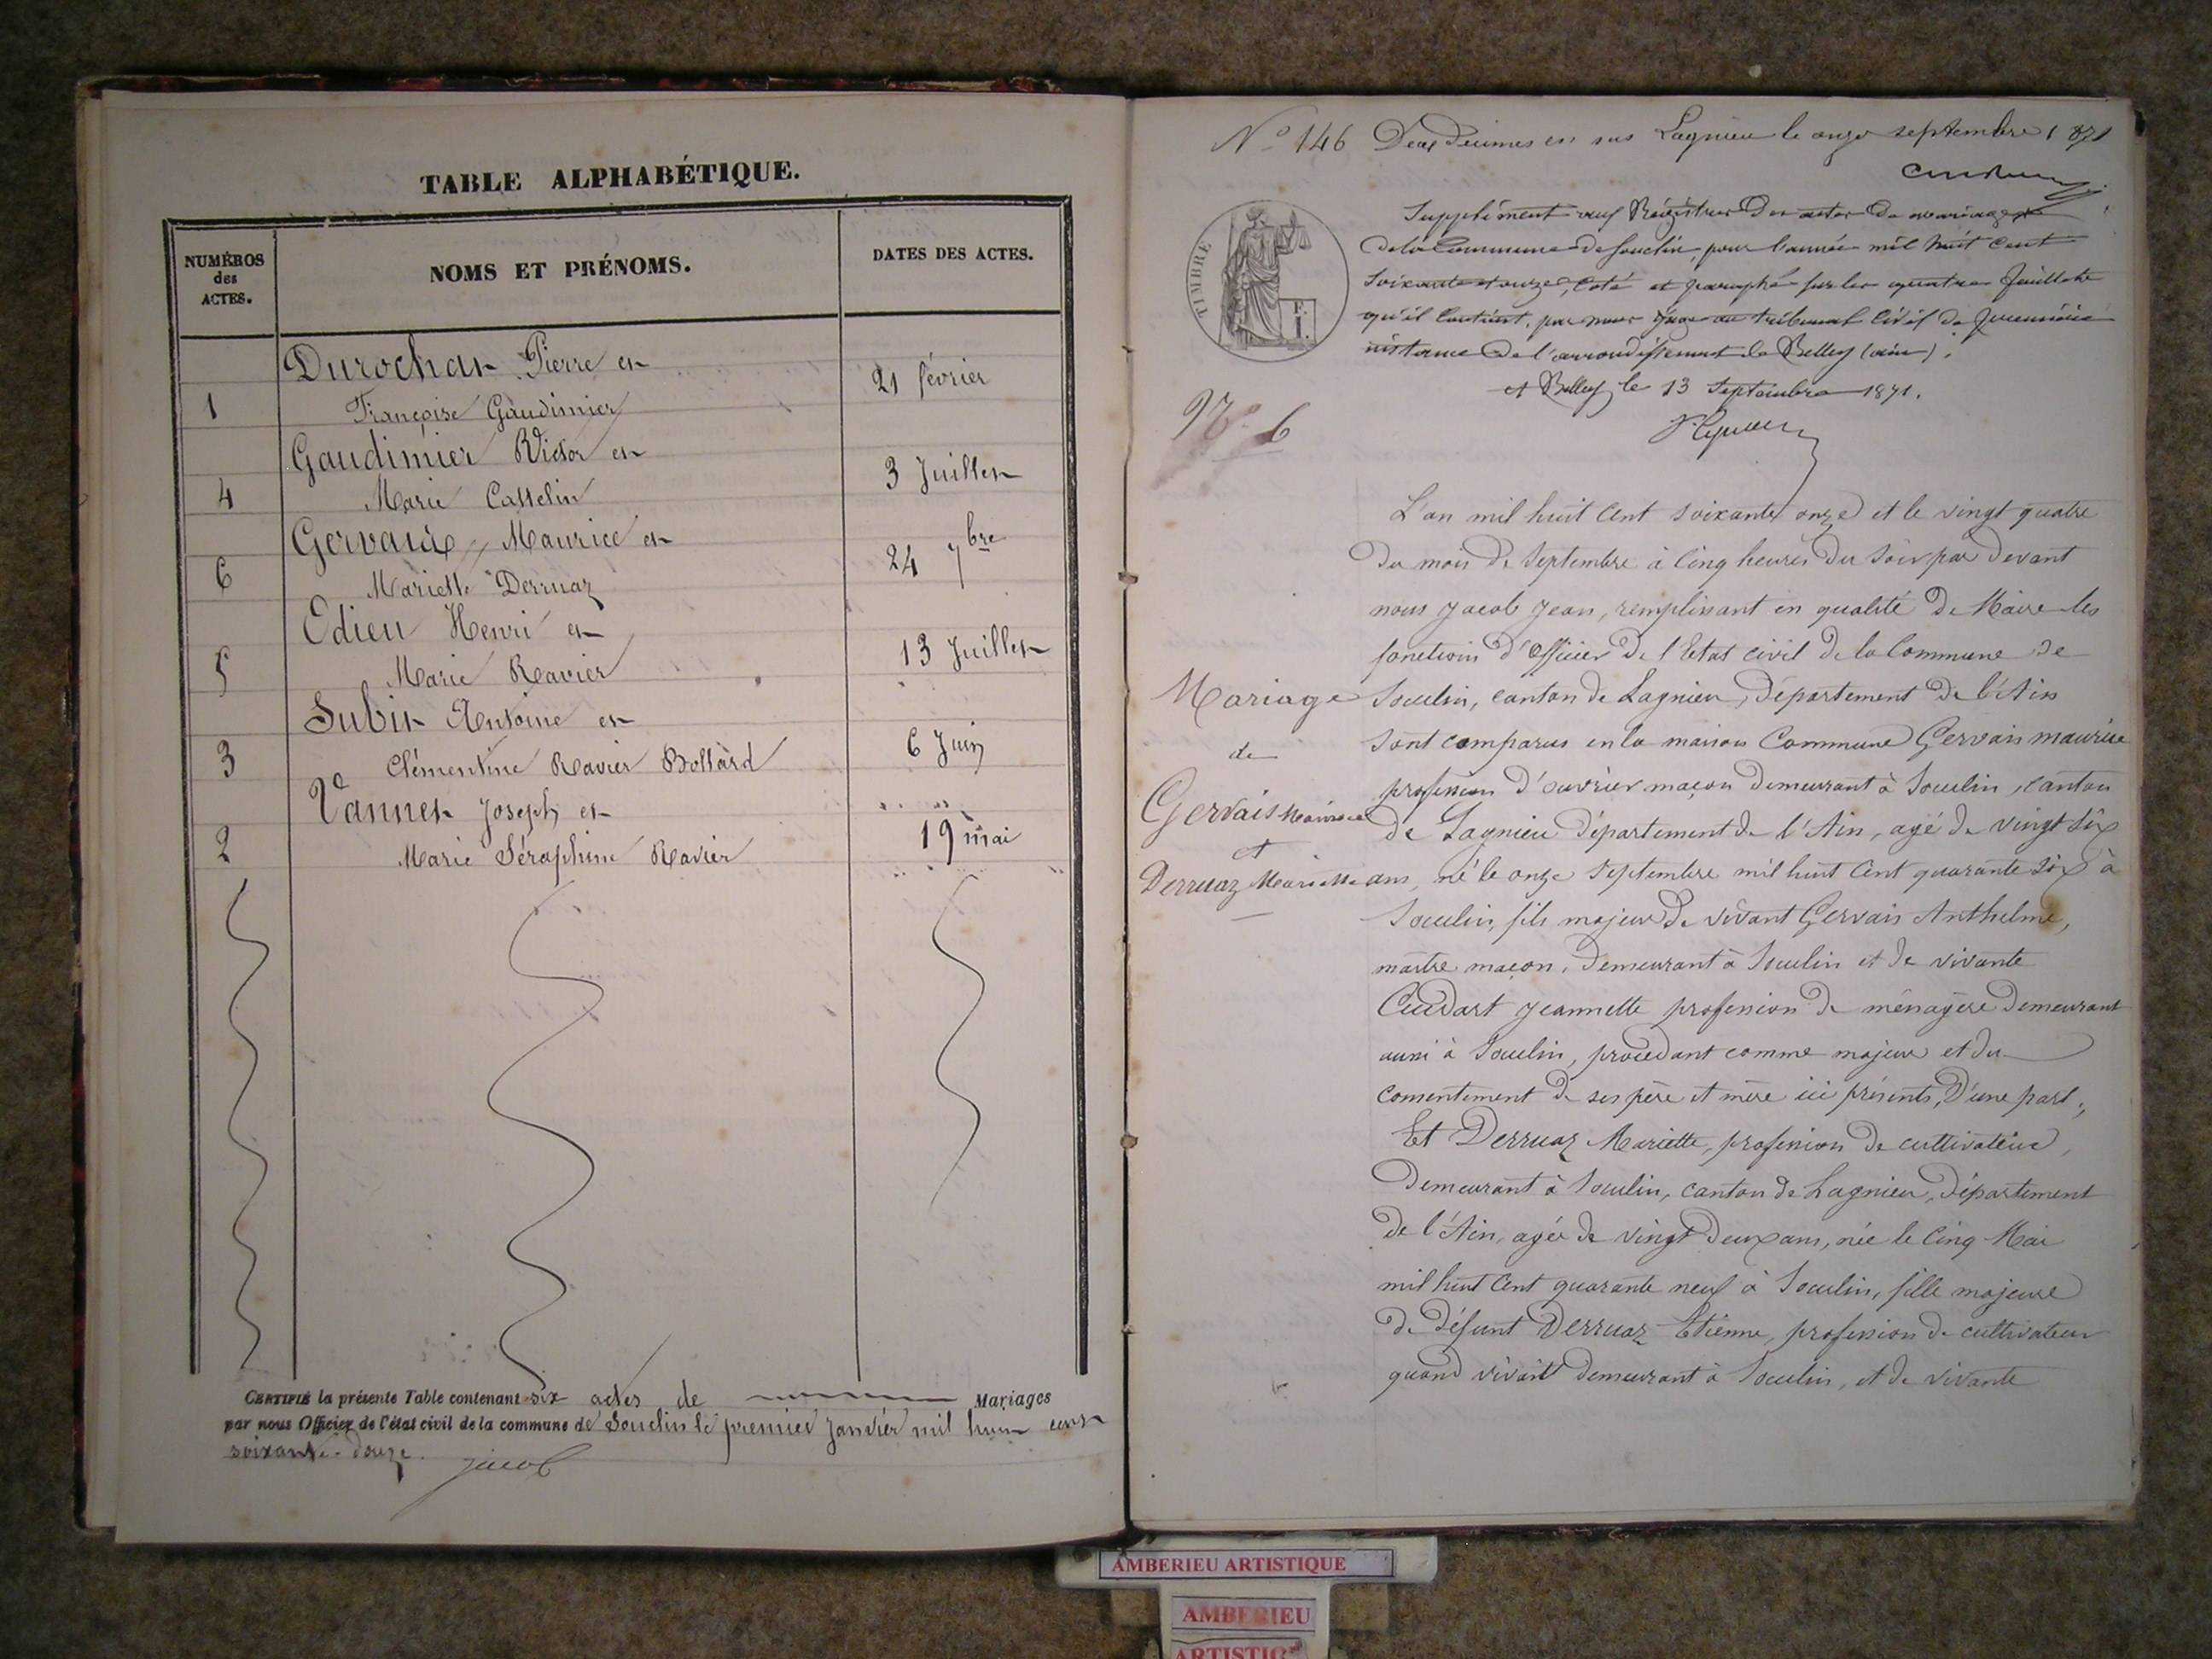 TABLE ALPHABÉTIQUE.
NUMÉROS
des
ACTES.
NOMS ET PRÉNOMS.
DATES DES ACTES.
Durochat Pierre et
1 Françoise Gaudimier 21 février
Gaudimier Victor et
4 Marie Casselin 3 Juillet
Gervais Maurice et
6 Mariette Derruaz 24 7bre
Edieu Henri et
5 Marie Ravier 13 Juillet
Subit Antoine et
3 Clémentine Ravier Bollard 6 Juin
Vannet Joseph et
2 Marie Séraphine Ravier 19 mai
CERTIFIÉ la présente Table contenant six actes de Mariages
par nous Officier de l'état civil de la commune de Souclin le premier janvier mil huit cent
soixante-douze. Jacob
No 146 Deux Décimes en sus Lagnieu le onze septembre 1871
TIMBRE
F.
I.
Supplément au Régistre des actes de mariage
de la Commune de Souclin, pour l'année mil huit cent
soixante et onze, coté et paraphé sur les quatre feuillets
qu'il contient, par nous Juge au tribunal civil de première
instance de l'arrondissement de Belley (ain).
A Belley le 13 Septembre 1871.
No 6
L'an mil huit cent soixante onze et le vingt quatre
du mois de Septembre à cinq heures du soir par devant
nous Jacob Jean, remplissant en qualité de Maire les
fonctions d'Officier de l'Etat civil de la Commune de
Souclin, canton de Lagnieu, département de l'Ain
sont comparus en la maison Commune Gervais maurice
profession d'ouvrier maçon demeurant à Souclin, canton
de Lagnieu département de l'Ain, agé de vingt six
ans, né le onze Septembre mil huit cent quarante six à
Souclin, fils majeur de vivant Gervais Anthelme,
maître maçon, demeurant à Souclin et de vivante
Cuidart Jeannette profession de ménagère demeurant
aussi à Souclin, procédant comme majeur et du
consentement de ses père et mère ici présents, d'une part;
Et Derruaz Mariette, profession de cultivateur,
demeurant à Souclin, canton de Lagnieu, département
de l'Ain, agée de vingt deux ans, née le cinq Mai
mil huit cent quarante neuf à Souclin, fille majeure
de défunt Derruaz Etienne, profession de cultivateur
quand vivait demeurant à Souclin, et de vivante
Mariage
de
Gervais Maurice
et
Derruaz Mariette
AMBERIEU ARTISTIQUE
AMBERIEU
ARTISTIQ